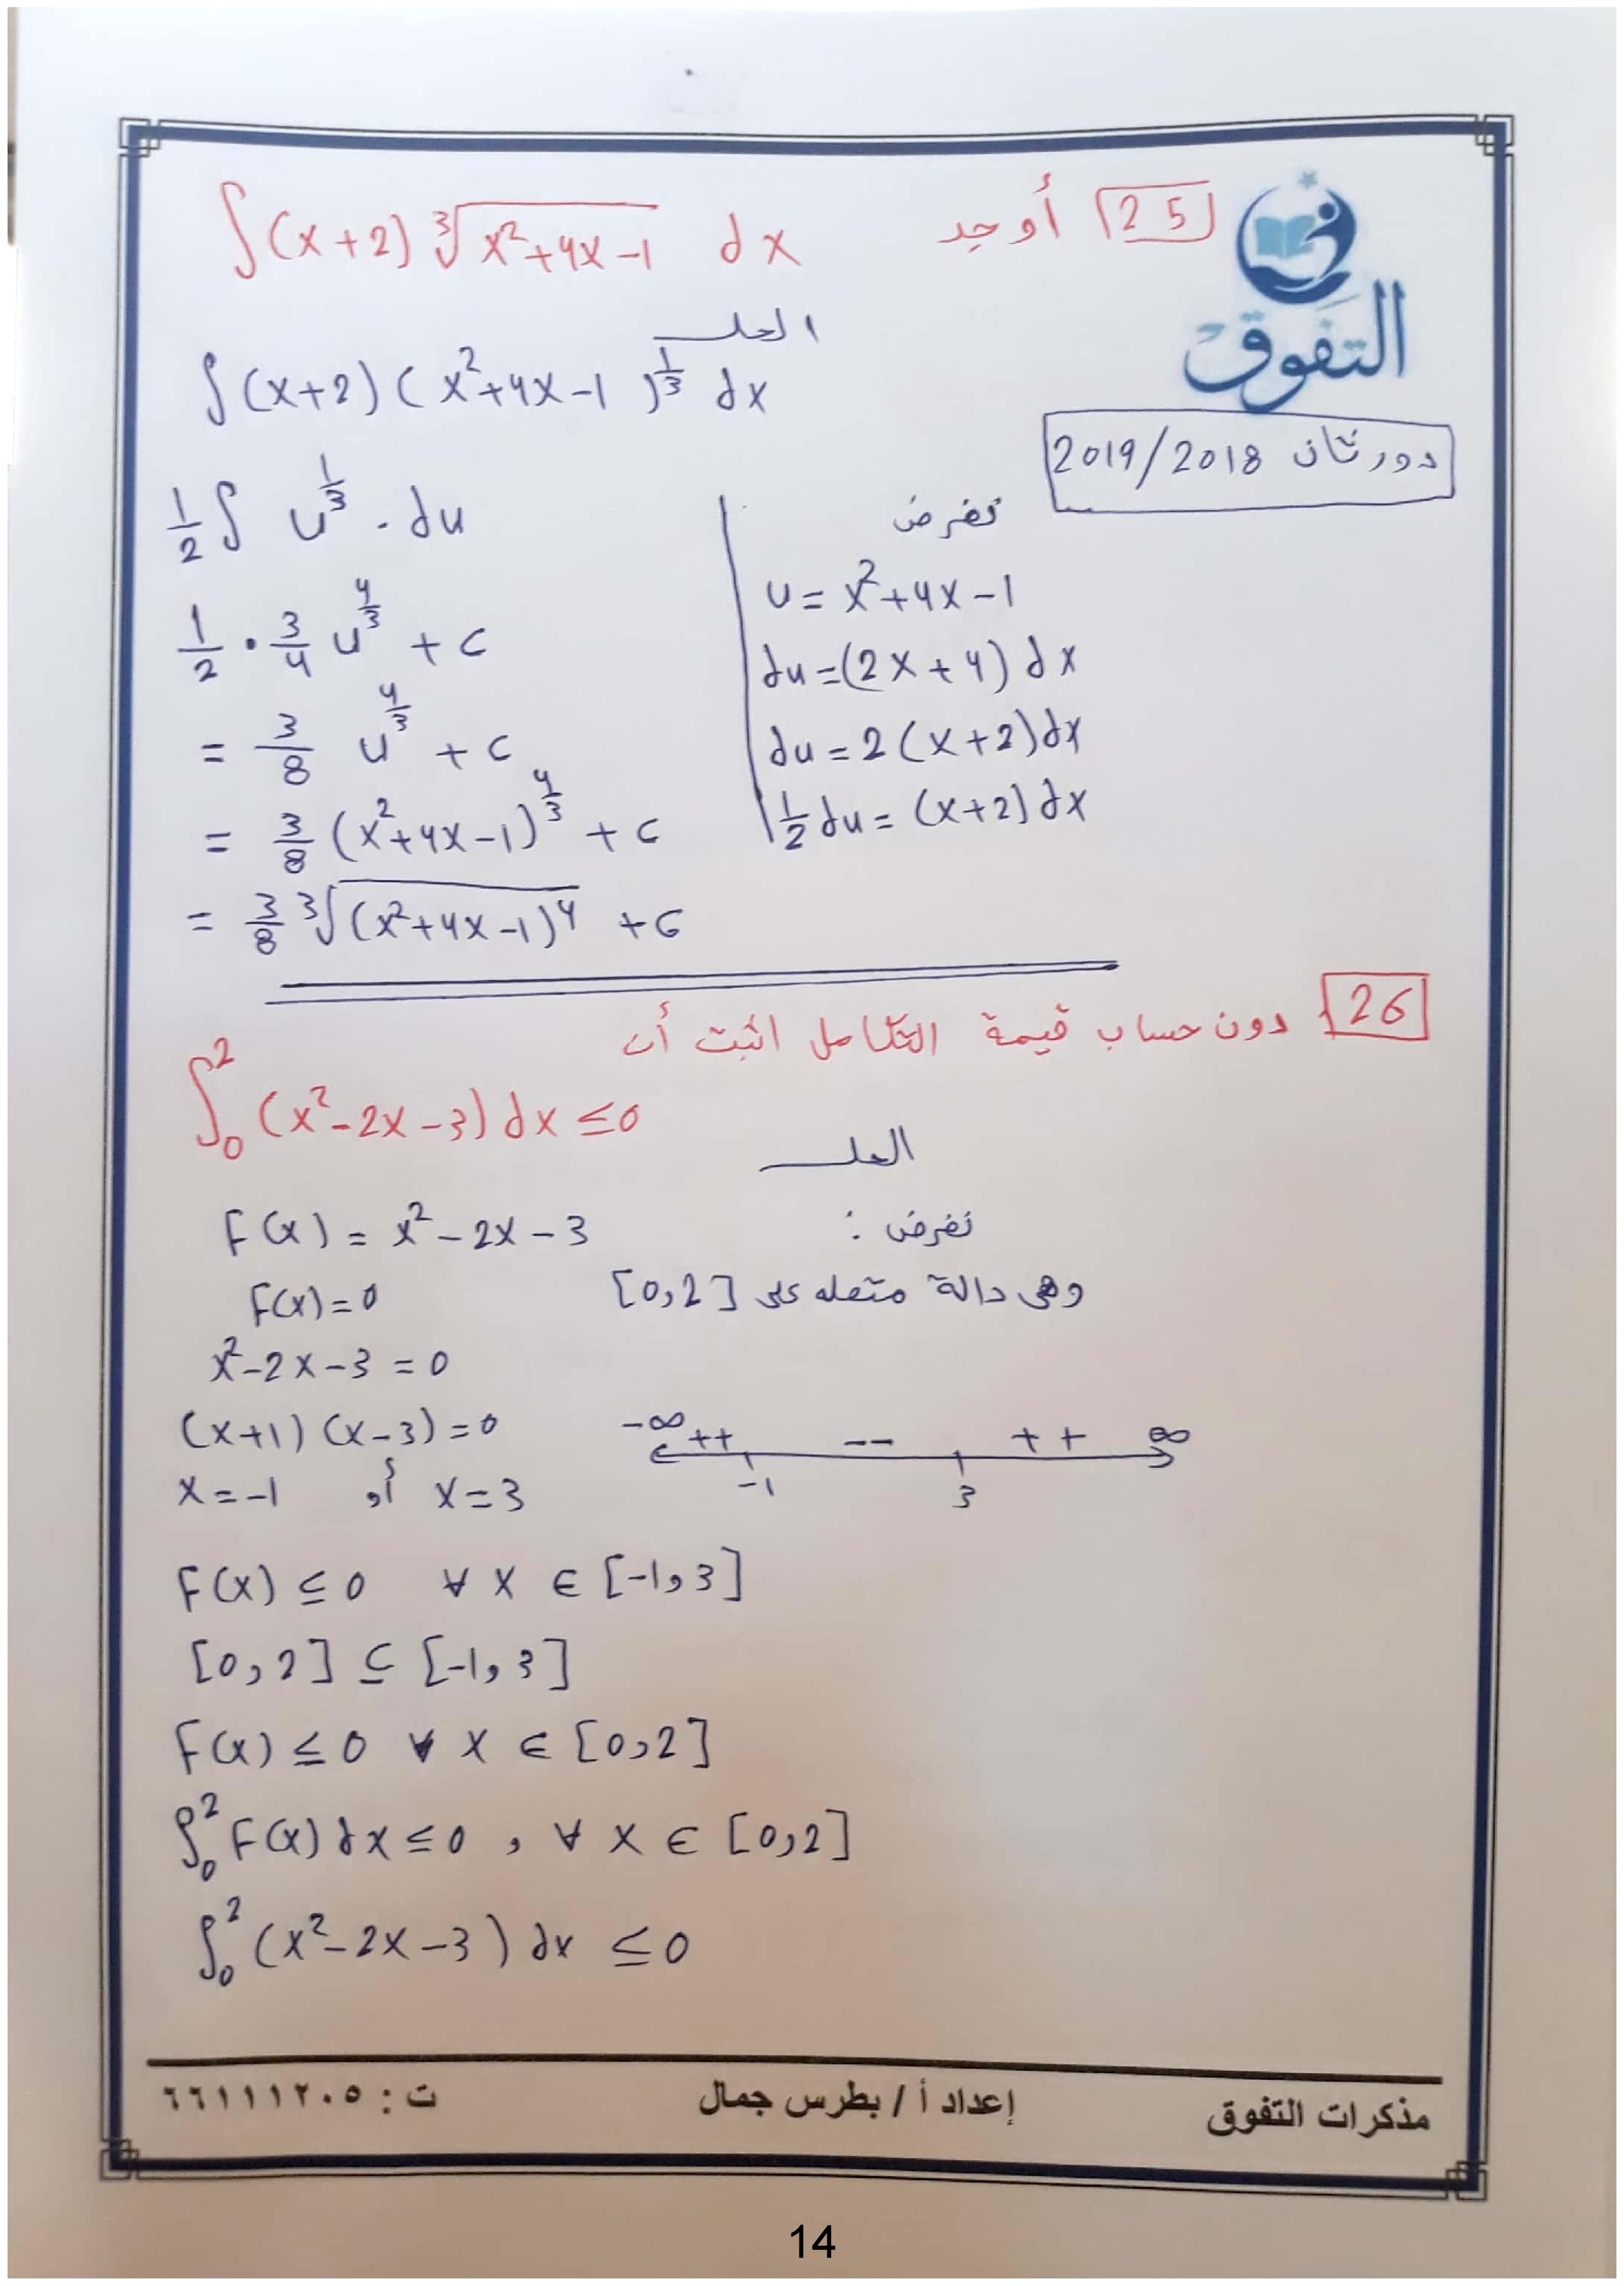 25 أوجد ∫(x+2) ∛(x²+4x-1) dx
التفوق
الحل
دور ثان 2019/2018
∫(x+2)(x²+4x-1)^(1/3) dx
نفرض
u = x²+4x-1
du = (2x+4) dx
du = 2(x+2)dx
1/2 du = (x+2)dx
1/2 ∫ u^(1/3) . du
1/2 · 3/4 u^(4/3) + c
= 3/8 u^(4/3) + c
= 3/8 (x²+4x-1)^(4/3) + c
= 3/8 ∛((x²+4x-1)⁴) + c
26 دون حساب قيمة التكامل اثبت أن
∫₀² (x²-2x-3) dx ≤ 0
الحل
نفرض : F(x) = x²-2x-3
وهى دالة متصله على [0,2]
F(x)=0
x²-2x-3 = 0
(x+1)(x-3)=0
x=-1 أو x=3
-∞ ++ -- ++ ∞
-1 3
F(x) ≤ 0 ∀ x ∈ [-1,3]
[0,2] ⊆ [-1,3]
F(x) ≤ 0 ∀ x ∈ [0,2]
∫₀² F(x) dx ≤ 0 , ∀ x ∈ [0,2]
∫₀² (x²-2x-3) dx ≤ 0
مذكرات التفوق إعداد أ / بطرس جمال ت : ٦٦١١١٢٠٥
14